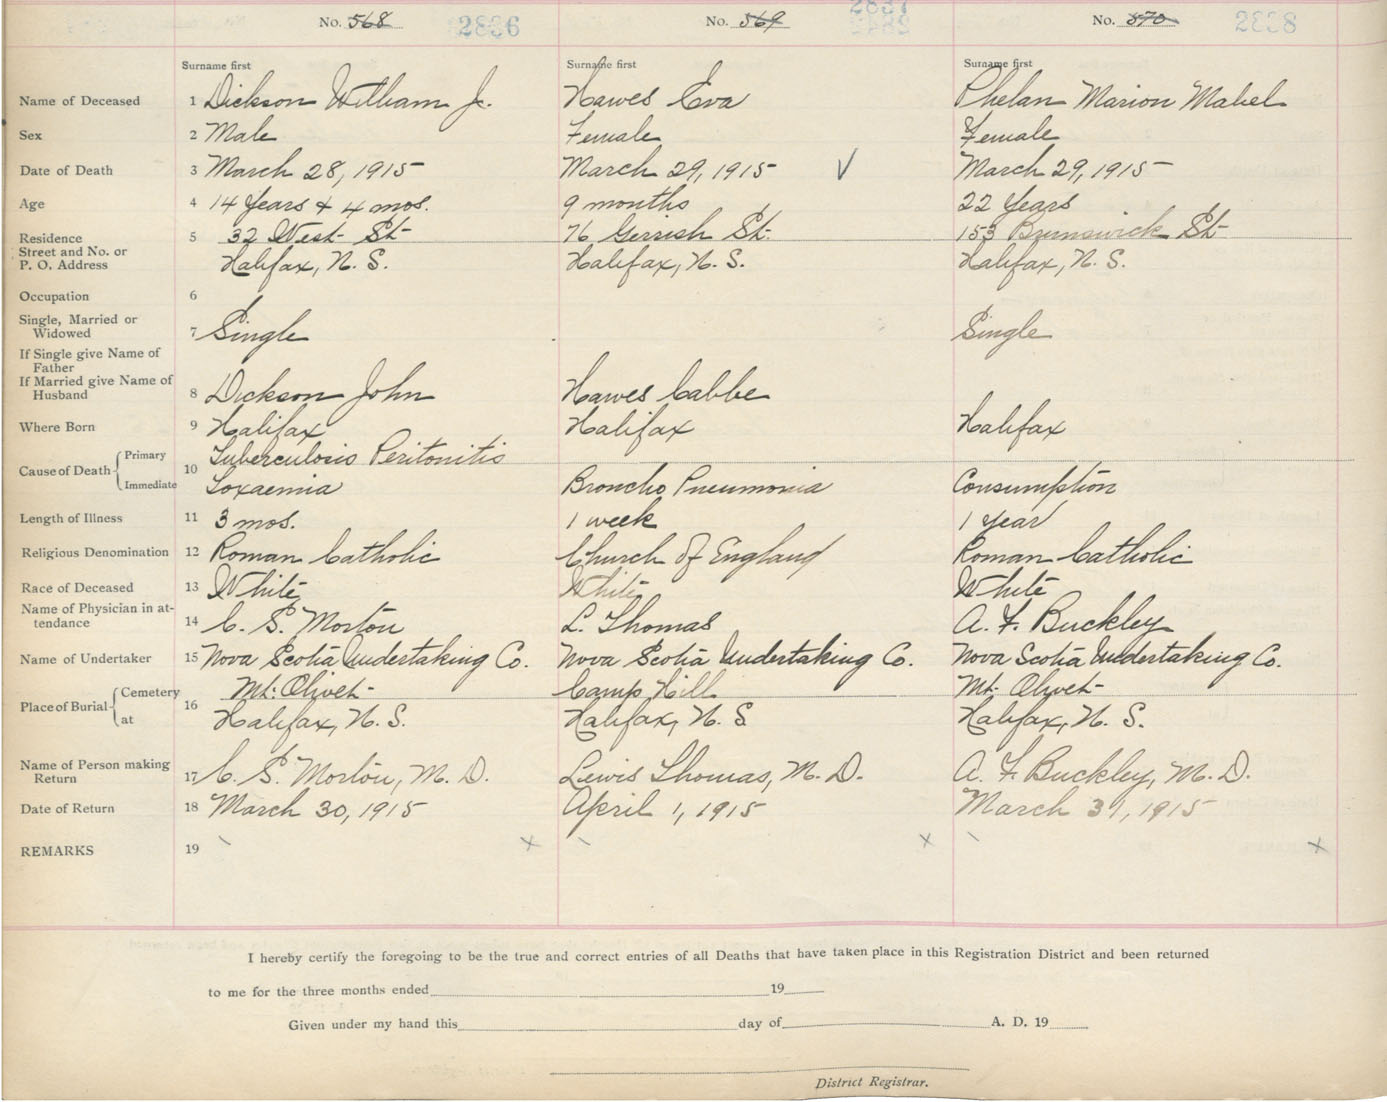 No. 568 2836 No. 569 2837 No. 570 2838
Surname first Surname first Surname first
Name of Deceased 1 Dickson William J. Hawes Eva Phelan Marion Mabel
Sex 2 Male Female Female
Date of Death 3 March 28, 1915 March 29, 1915 March 29, 1915
Age 4 14 Years & 4 mos. 9 months 22 Years
Residence 5 32 West St 76 Gerrish St. 153 Brunswick St
Street and No. or
P. O. Address Halifax, N. S. Halifax, N. S. Halifax, N. S.
Occupation 6
Single, Married or
Widowed 7 Single Single
If Single give Name of
Father
If Married give Name of
Husband 8 Dickson John Hawes
Where Born 9 Halifax Halifax Halifax
Cause of Death Primary 10 Tuberculosis Peritonitis
Immediate Toxaemia Broncho Pneumonia Consumption
Length of Illness 11 3 mos. 1 week 1 year
Religious Denomination 12 Roman Catholic Church of England Roman Catholic
Race of Deceased 13 White White White
Name of Physician in at-
tendance 14 C. S. Morton L. Thomas A. F. Buckley
Name of Undertaker 15 Nova Scotia Undertaking Co. Nova Scotia Undertaking Co. Nova Scotia Undertaking Co.
Place of Burial Cemetery 16 Mt. Olivet Camp Hill Mt. Olivet
at Halifax, N. S. Halifax, N. S. Halifax, N. S.
Name of Person making
Return 17 C. S. Morton, M. D. Lewis Thomas, M. D. A. F. Buckley, M. D.
Date of Return 18 March 30, 1915 April 1, 1915 March 31, 1915
REMARKS 19
I hereby certify the foregoing to be the true and correct entries of all Deaths that have taken place in this Registration District and been returned
to me for the three months ended 19
Given under my hand this day of A. D. 19
District Registrar.